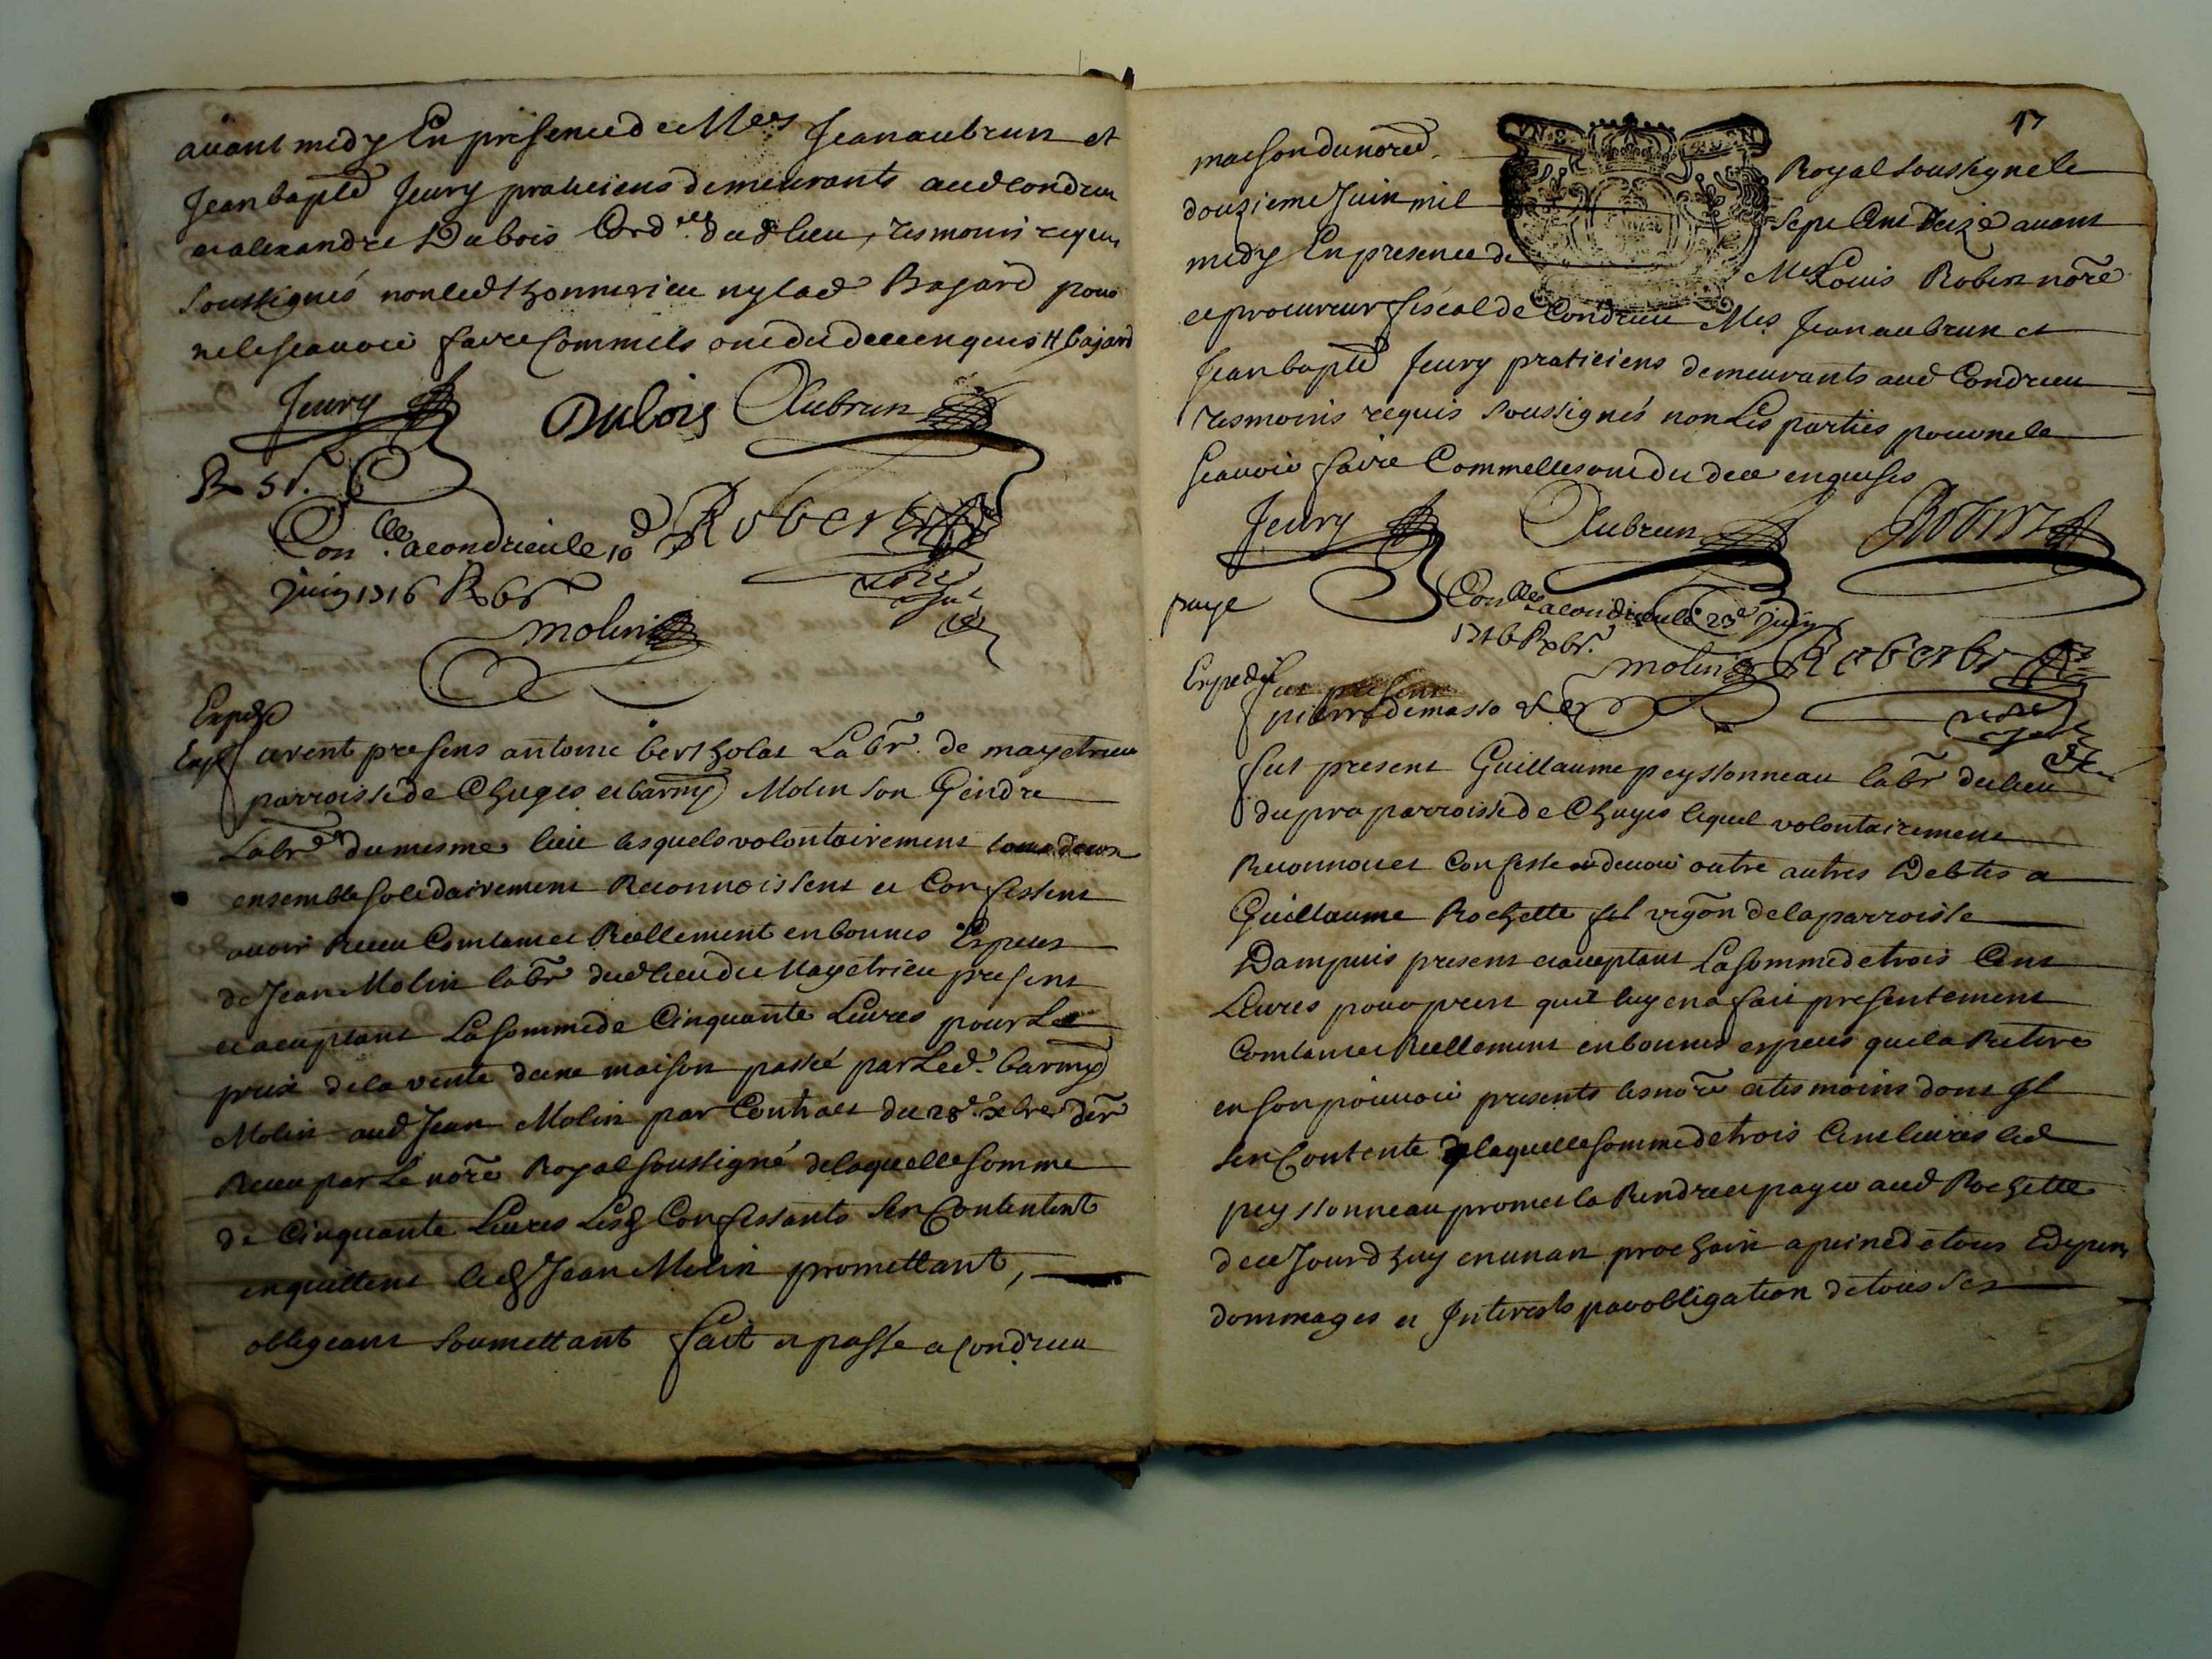 avant midy En presence de Mes Jean aubrun et
Jean baptᵉ Jeury praticiens demeurants aud condrieu
et alexandre Dubois Cordʳ dud lieu, tesmoins requis
soussignés non led thonnerieu ny lad Bajard pour
ne le scavoir faire comme ils ont dit de ce enquis H bajard
Jeury Dubois Aubrun
R 5 s.
Conlle a condrieu le 10e Robert
juin 1716 R 6 s
nore
royal
molin
Exped
Exp
furent presens antoine bertholat Labr. de mayetrieu
parroisse de Chuyes et barmy Molin son Gendre
Labr du mesme lieu lesquels volontairement
ensemble solidairement Reconnoissent et Confessent
avoir Receu Comtant et Reellement en bonnes Especes
de Jean Molin labr dud lieu de Mayetrieu present
et aceptant La somme de Cinquante Livres pour Le
prix de la vente dune maison passée par Led. barmy
Molin aud Jean Molin par Contract du 28e xbre der
Receu par Le nore Royal soussigné de laquelle somme
de Cinquante Livres Lesd Confessants sen Contentent
en quittent led Jean Molin promettant,
obligeant soumettant fait et passe a Condrieu
17
maison du nore Royal soussigne le
douzieme Juin mil sept Cent seize avant
midy En presence de Me Louis Robin nore
et procureur fiscal de Condrieu Mes Jean aubrun et
Jean baptᵉ Jeury praticiens demeurants aud Condrieu
tesmoins requis soussignés non Les parties pour ne le
scavoir faire Comme elles ont dit de ce enquises
Jeury Aubrun Robin
paye
Conlle a condrieu le 23e juin
1716 R 6 s.
molin Robert
nore
royal
Exped
fut present
pierre demasso
fut present Guillaume peyssonneau labr du lieu
du pra parroisse de Chuyes lequel volontairement
Reconnoit et Confesse devoir outre autres Debtes a
Guillaume Rochette fil vigon de la parroisse
Dampuis present et aceptant La somme de trois Cent
Livres pour prest quil luy en a fait presentement
Comtant et Reellement en bonnes especes quil a Retiré
en son pouvoir presents les nore et tesmoins dont Il
sen Contente de laquelle somme de trois Cent livres led
peyssonneau promet la Rendre et payer aud Rochette
de ce Jourdhuy en un an prochain a peine de tous Depens
dommages et Interests par obligation de tous ses